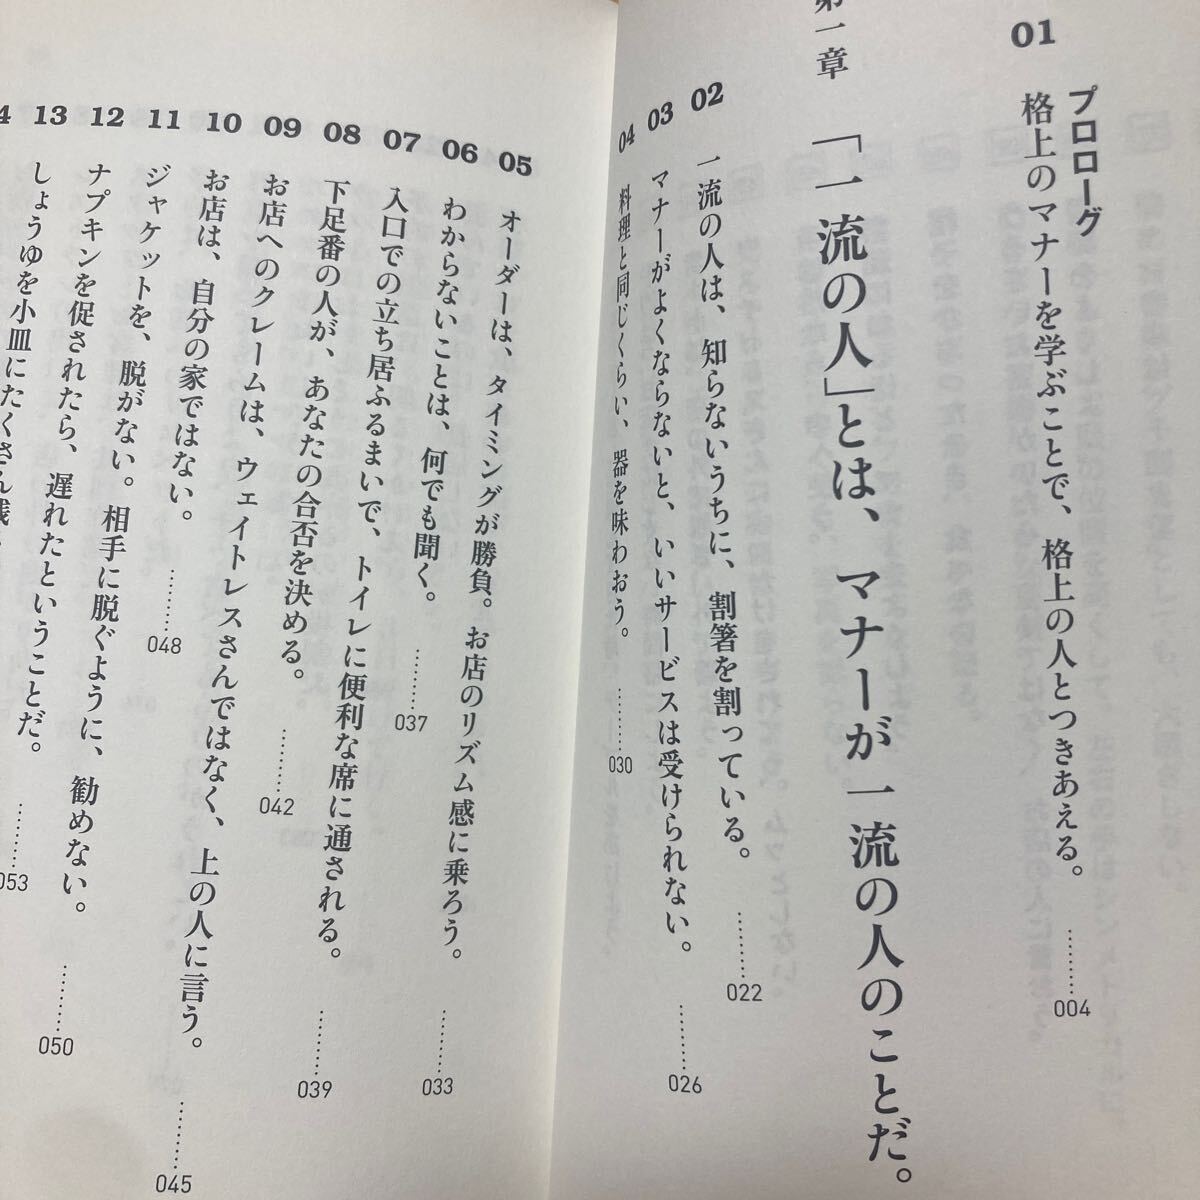 プロローグ
01 格上のマナーを学ぶことで、格上の人とつきあえる。 ………004
第一章 「一流の人」とは、マナーが一流の人のことだ。
02 一流の人は、知らないうちに、割箸を割っている。 ………022
03 マナーがよくならないと、いいサービスは受けられない。 ………026
04 料理と同じくらい、器を味わおう。 ………030
05 オーダーは、タイミングが勝負。お店のリズム感に乗ろう。 ………033
06 わからないことは、何でも聞く。 ………037
07 入口での立ち居ふるまいで、トイレに便利な席に通される。 ………039
08 下足番の人が、あなたの合否を決める。 ………042
09 お店へのクレームは、ウェイトレスさんではなく、上の人に言う。 ………045
10 お店は、自分の家ではない。 ………048
11 ジャケットを、脱がない。相手に脱ぐように、勧めない。 ………050
12 ナプキンを促されたら、遅れたということだ。 ………053
13 しょうゆを小皿にたくさん残
4